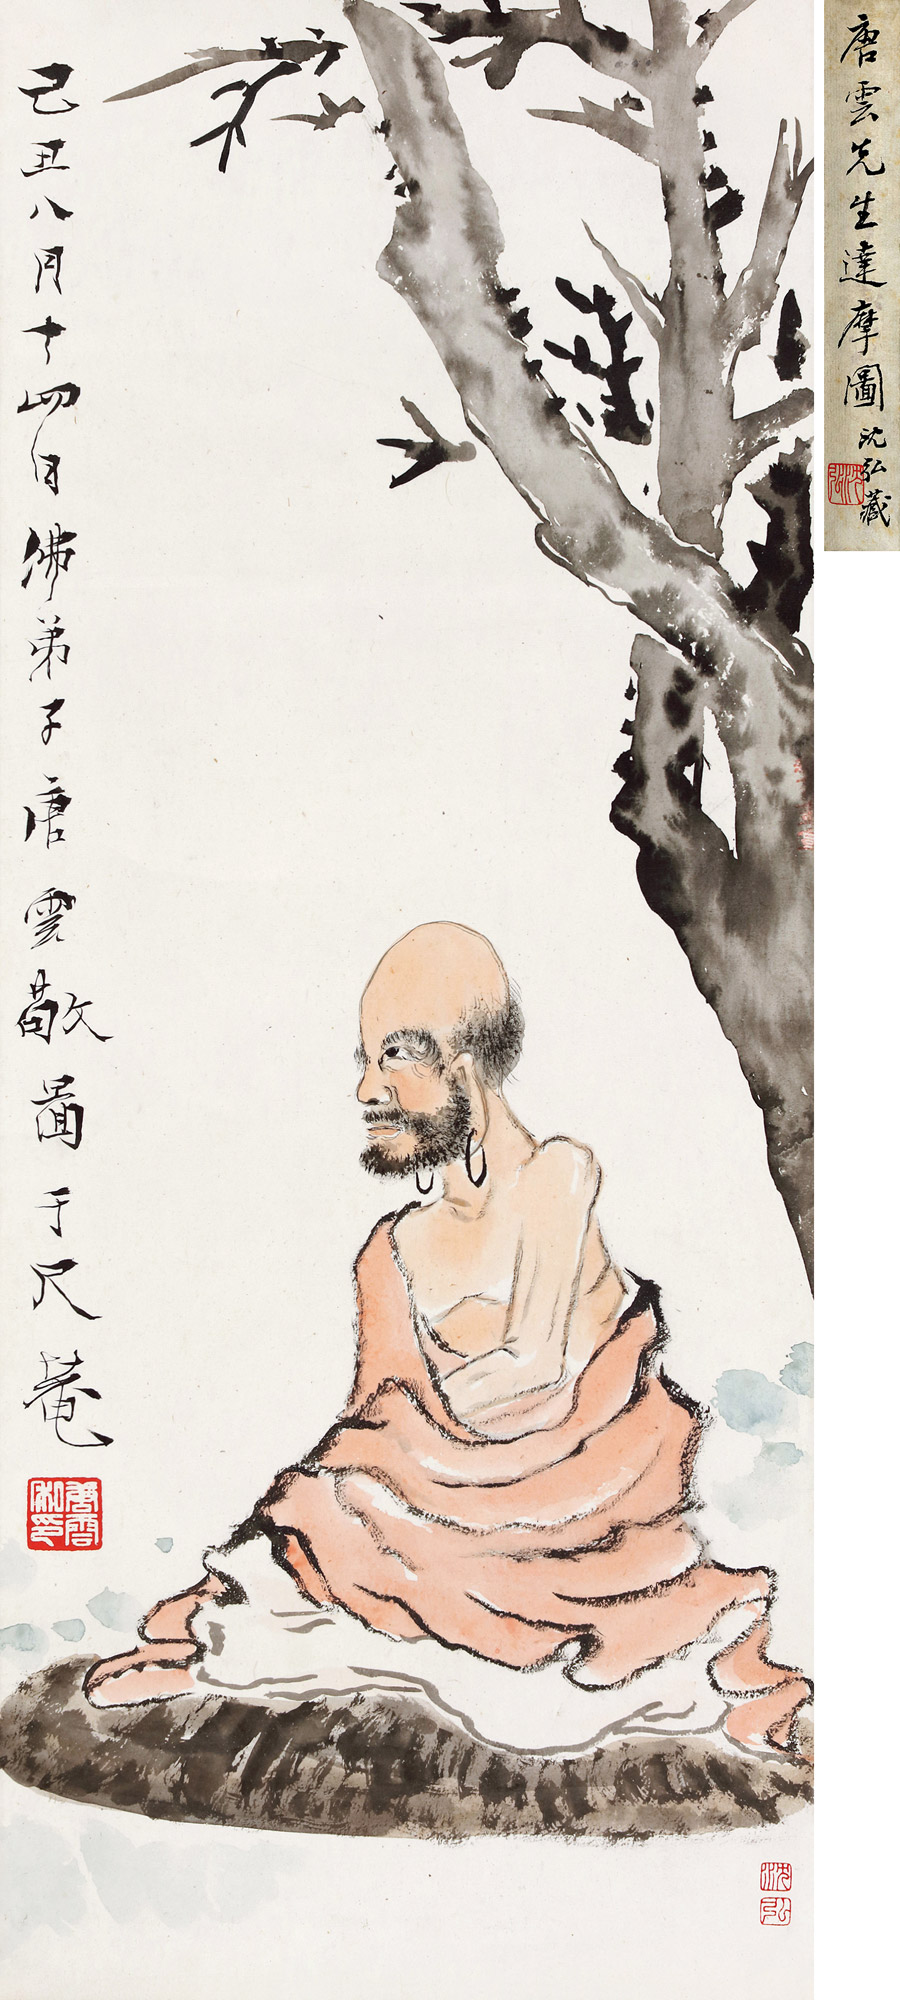 唐雲先生達摩圖
沈弘藏
沈弘
己丑八月十四日佛弟子唐雲敬圖于尺菴
唐雲私印
沈弘